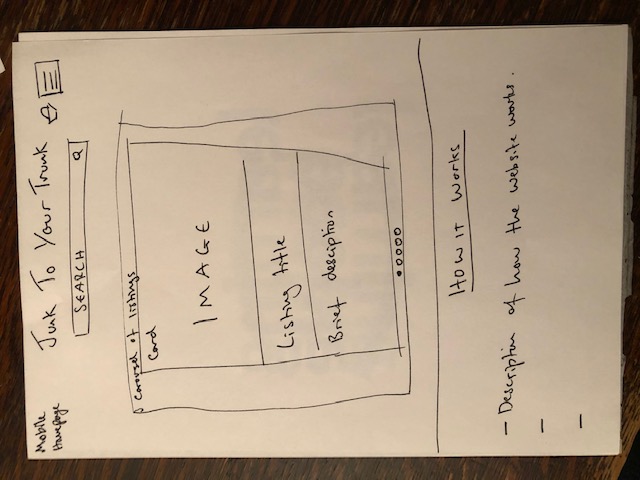 Mobile
Homepage
Junk To Your Trunk
SEARCH
Carousel of listings
Card
IMAGE
Listing title
Brief desciption
HOW IT WORKS
- Description of how the website works.
-
-